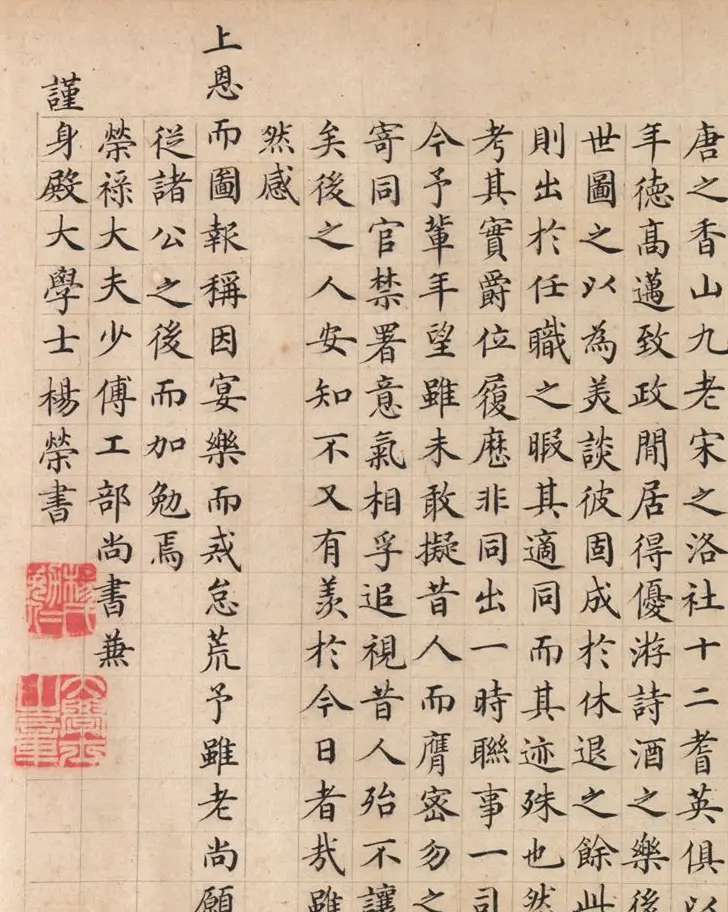 唐之香山九老宋之洛社十二耆英俱以
年徳髙邁致政閒居得優游詩酒之樂後
世圖之以為美談彼固成於休退之餘此
則出於任職之暇其適同而其迹殊也然
考其實爵位履歷非同出一時聯事一司
今予軰年望雖未敢擬昔人而膺宻勿之
寄同官禁署意氣相孚追視昔人殆不讓
矣後之人安知不又有羡於今日者㢤雖
然感
上恩而圖報稱因宴樂而戒怠荒予雖老尚願
従諸公之後而加勉焉
榮祿大夫少傅工部尚書兼
謹身殿大學士楊榮書